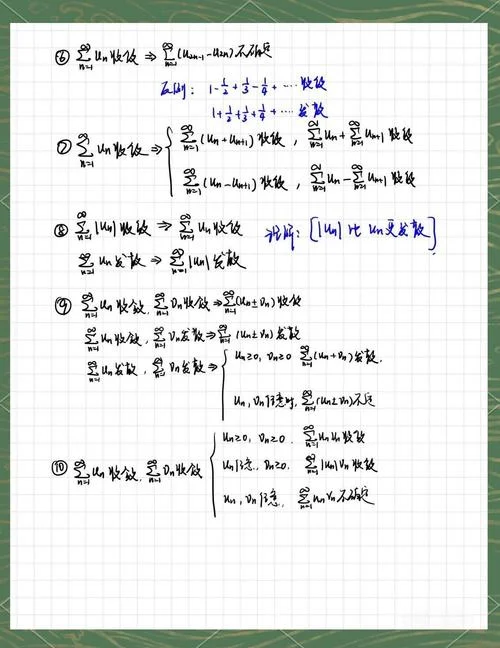 ⑥ ∑_{n=1}^{∞} Un 收敛 ⇒ ∑_{n=1}^{∞} (U2n-1 - U2n) 不确定
反例: 1 - 1/2 + 1/3 - 1/4 + ⋯ 收敛
1 + 1/2 + 1/3 + 1/4 + ⋯ 发散
⑦ ∑_{n=1}^{∞} Un 收敛 ⇒ { ∑_{n=1}^{∞} (Un + Un+1) 收敛, ∑_{n=1}^{∞} Un + ∑_{n=1}^{∞} Un+1 收敛
∑_{n=1}^{∞} (Un - Un+1) 收敛, ∑_{n=1}^{∞} Un - ∑_{n=1}^{∞} Un+1 收敛
⑧ ∑_{n=1}^{∞} |Un| 收敛 ⇒ ∑_{n=1}^{∞} Un 收敛 注解: [|Un| 比 Un 更发散]
∑_{n=1}^{∞} Un 发散 ⇒ ∑_{n=1}^{∞} |Un| 发散
⑨ ∑_{n=1}^{∞} Un 收敛, ∑_{n=1}^{∞} Vn 收敛 ⇒ ∑_{n=1}^{∞} (Un ± Vn) 收敛
∑_{n=1}^{∞} Un 收敛, ∑_{n=1}^{∞} Vn 发散 ⇒ ∑_{n=1}^{∞} (Un ± Vn) 发散
∑_{n=1}^{∞} Un 发散, ∑_{n=1}^{∞} Vn 发散 ⇒ { Un ≥ 0, Vn ≥ 0 ∑_{n=1}^{∞} (Un + Vn) 发散.
Un, Vn 任意时, ∑_{n=1}^{∞} (Un ± Vn) 不定
⑩ ∑_{n=1}^{∞} Un 收敛, ∑_{n=1}^{∞} Vn 收敛 { Un ≥ 0, Vn ≥ 0. ∑_{n=1}^{∞} Un Vn 收敛
Un 任意, Vn ≥ 0. ∑_{n=1}^{∞} |Un| Vn 收敛
Un, Vn 任意, ∑_{n=1}^{∞} Un Vn 不确定